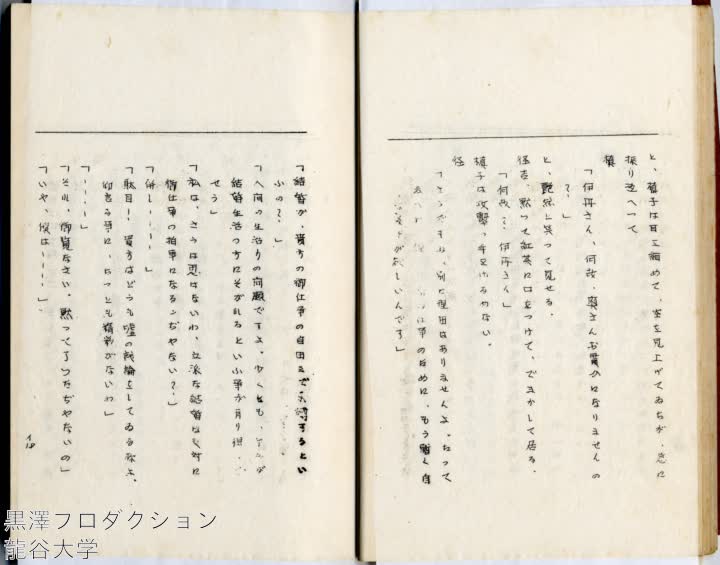 と、槇子は目を細めて、空を見上げてゐたが、急に
振り返へつて
槇
「伊丹さん、何故、奥さんお貰ひになりませんの
?」
と、艶然と笑つて見せる。
伊吉、黙つて紅茶に口をつけて、ごまかして居る。
「何故? 伊丹さん」
槇子は攻撃の手をゆるめない。
「さうですね、別に理由はありませんよ。たつて
仕事のために、もう暫く自
が欲しいんです」
「結婚が、貴方の御仕事の自由までお縛するとい
ふの?」
「人間の生活力の問題ですよ。少くとも、
結婚生活の方にそがれるといふ事が有り得
せう」
「私は、さうは思はないわ、立派な結婚は絶対に
御仕事の拍車になるんぢやない?」
「併し————」
「駄目! 貴方はどうも嘘の議論をしてゐるなよ、
仰言る事に、ちつとも情熱がないわ」
「————」
「それ、御覧なさい。黙つて了つたぢやないの」
「いや、僕は————」
18
黒澤プロダクション
龍谷大学